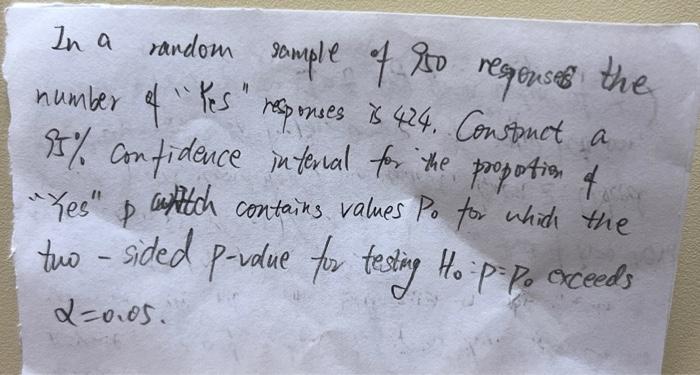 In a random sample of 950 responses the
number of "Yes" responses is 424. Construct a
95% confidence interval for the proportion of
"Yes" p which contains values P₀ for which the
two-sided p-value for testing H₀:p=p₀ exceeds
α=0.05.